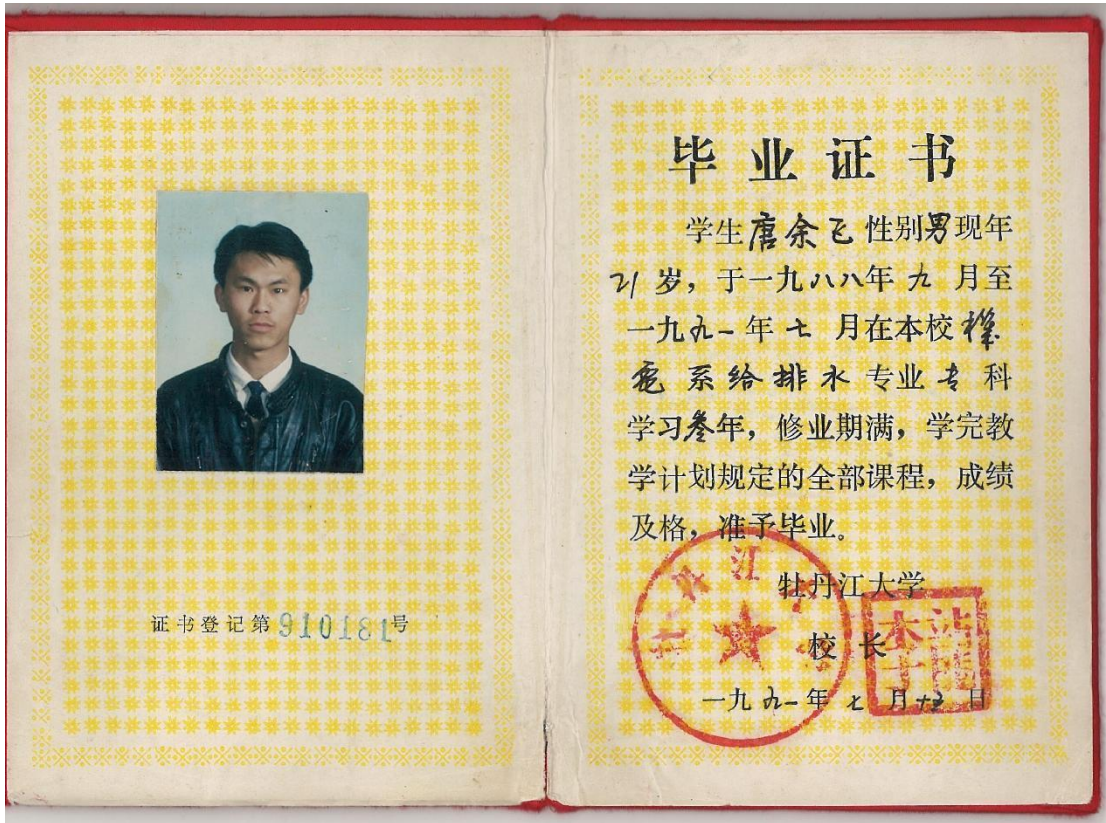 证书登记第910181号
毕业证书
学生唐余飞性别男现年
21岁，于一九八八年九月至
一九九一年七月在本校
系给排水专业专科
学习叁年，修业期满，学完教
学计划规定的全部课程，成绩
及格，准予毕业。
牡丹江大学
校长
一九九一年七月十五日